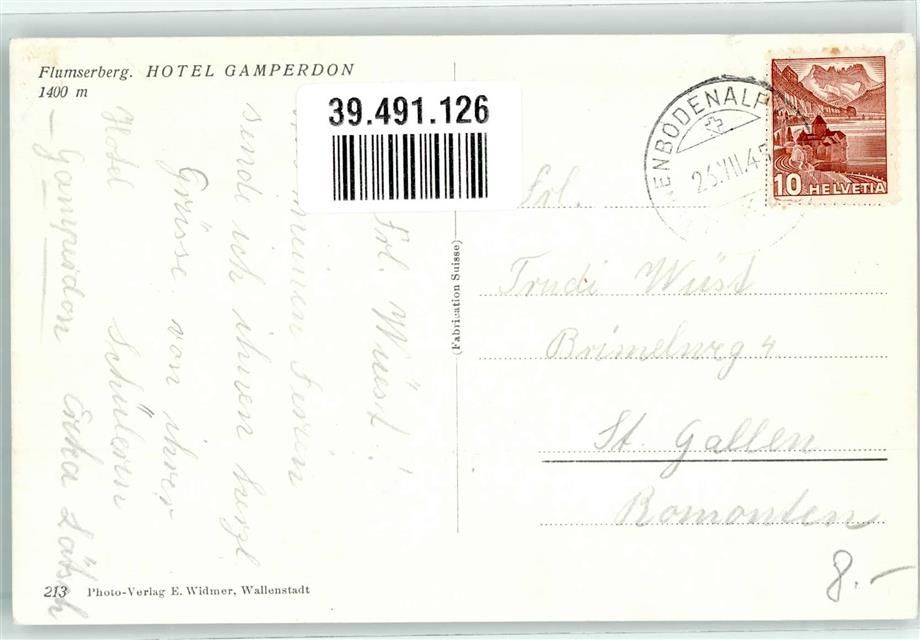 Flumserberg. HOTEL GAMPERDON
1400 m
39.491.126
Frl. Wüest!
meinen Ferien
sende ich ihnen herzl.
Grüsse von ihrer
Schülerin
Erika
Hotel
Gamperdon
(Fabrication Suisse)
213 Photo-Verlag E. Widmer, Wallenstadt
ENBODENALP
23.VII.45
10 HELVETIA
Frl.
Trudi Wüst
4
St. Gallen
8.-